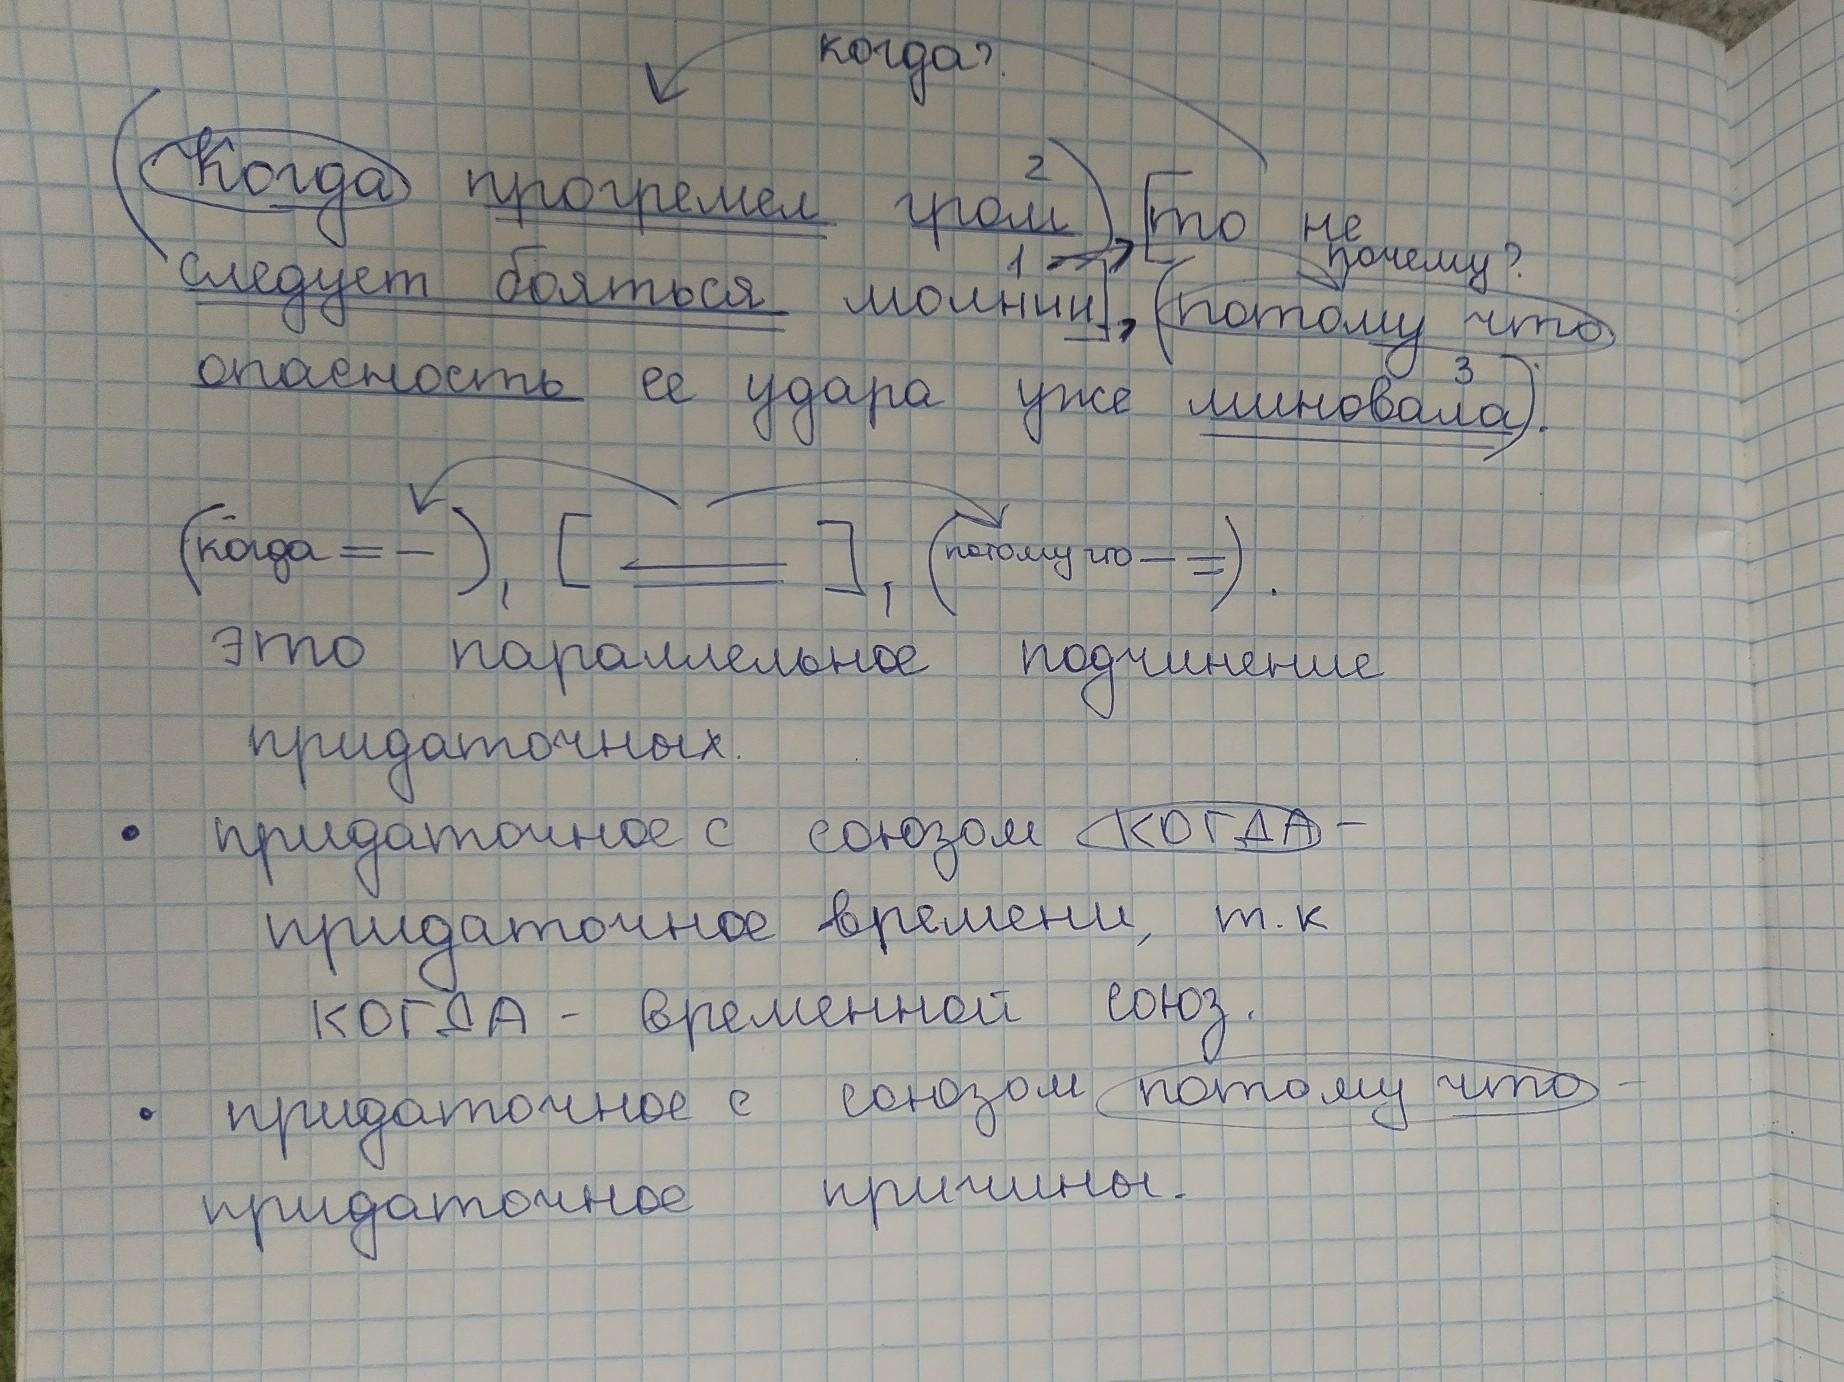 когда?
Когда прогремел гром 2, то не
почему?
следует бояться молнии 1, потому что
опасность ее удара уже миновала 3.
(когда = –), [ = ], (потому что – =).
это параллельное подчинение
придаточных.
• придаточное с союзом КОГДА –
придаточное времени, т.к
КОГДА – временной союз.
• придаточное с союзом потому что –
придаточное причины.